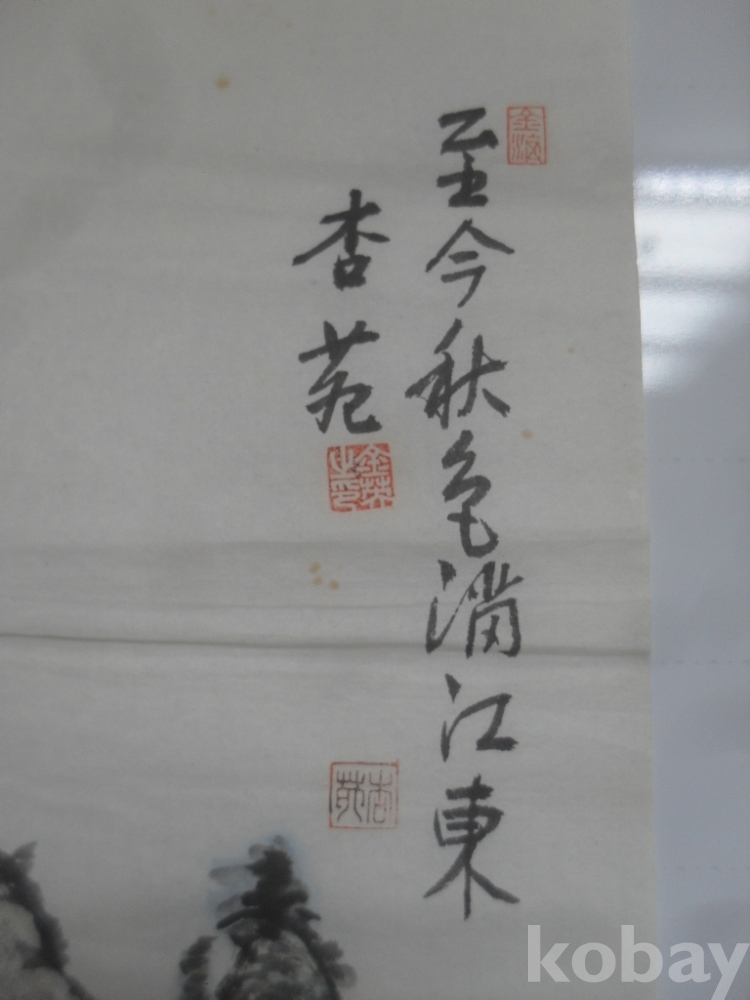 至今秋色滿江東
杏苑
杏苑
kobay